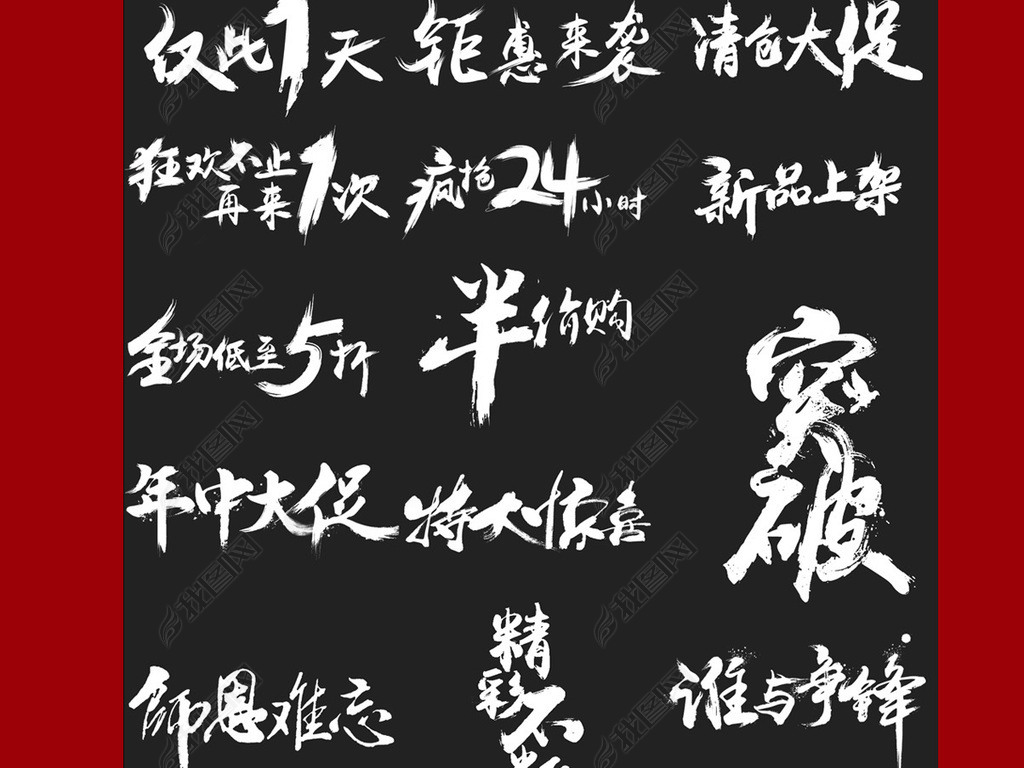 仅此1天
钜惠来袭
清仓大促
狂欢不止
再来1次
疯抢24小时
新品上架
全场低至5折
半价购
突破
年中大促
特大惊喜
师恩难忘
精彩不断
谁与争锋